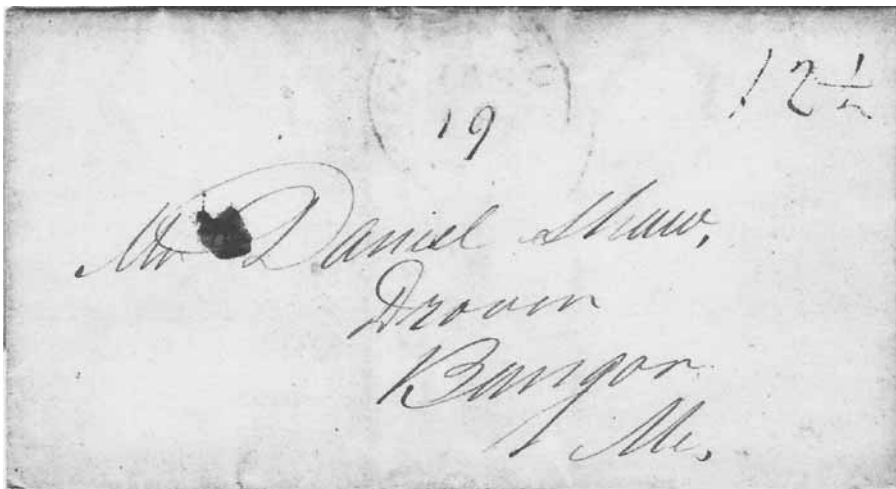 12½
19
Mr Daniel Shaw,
Drover
Bangor
Me.